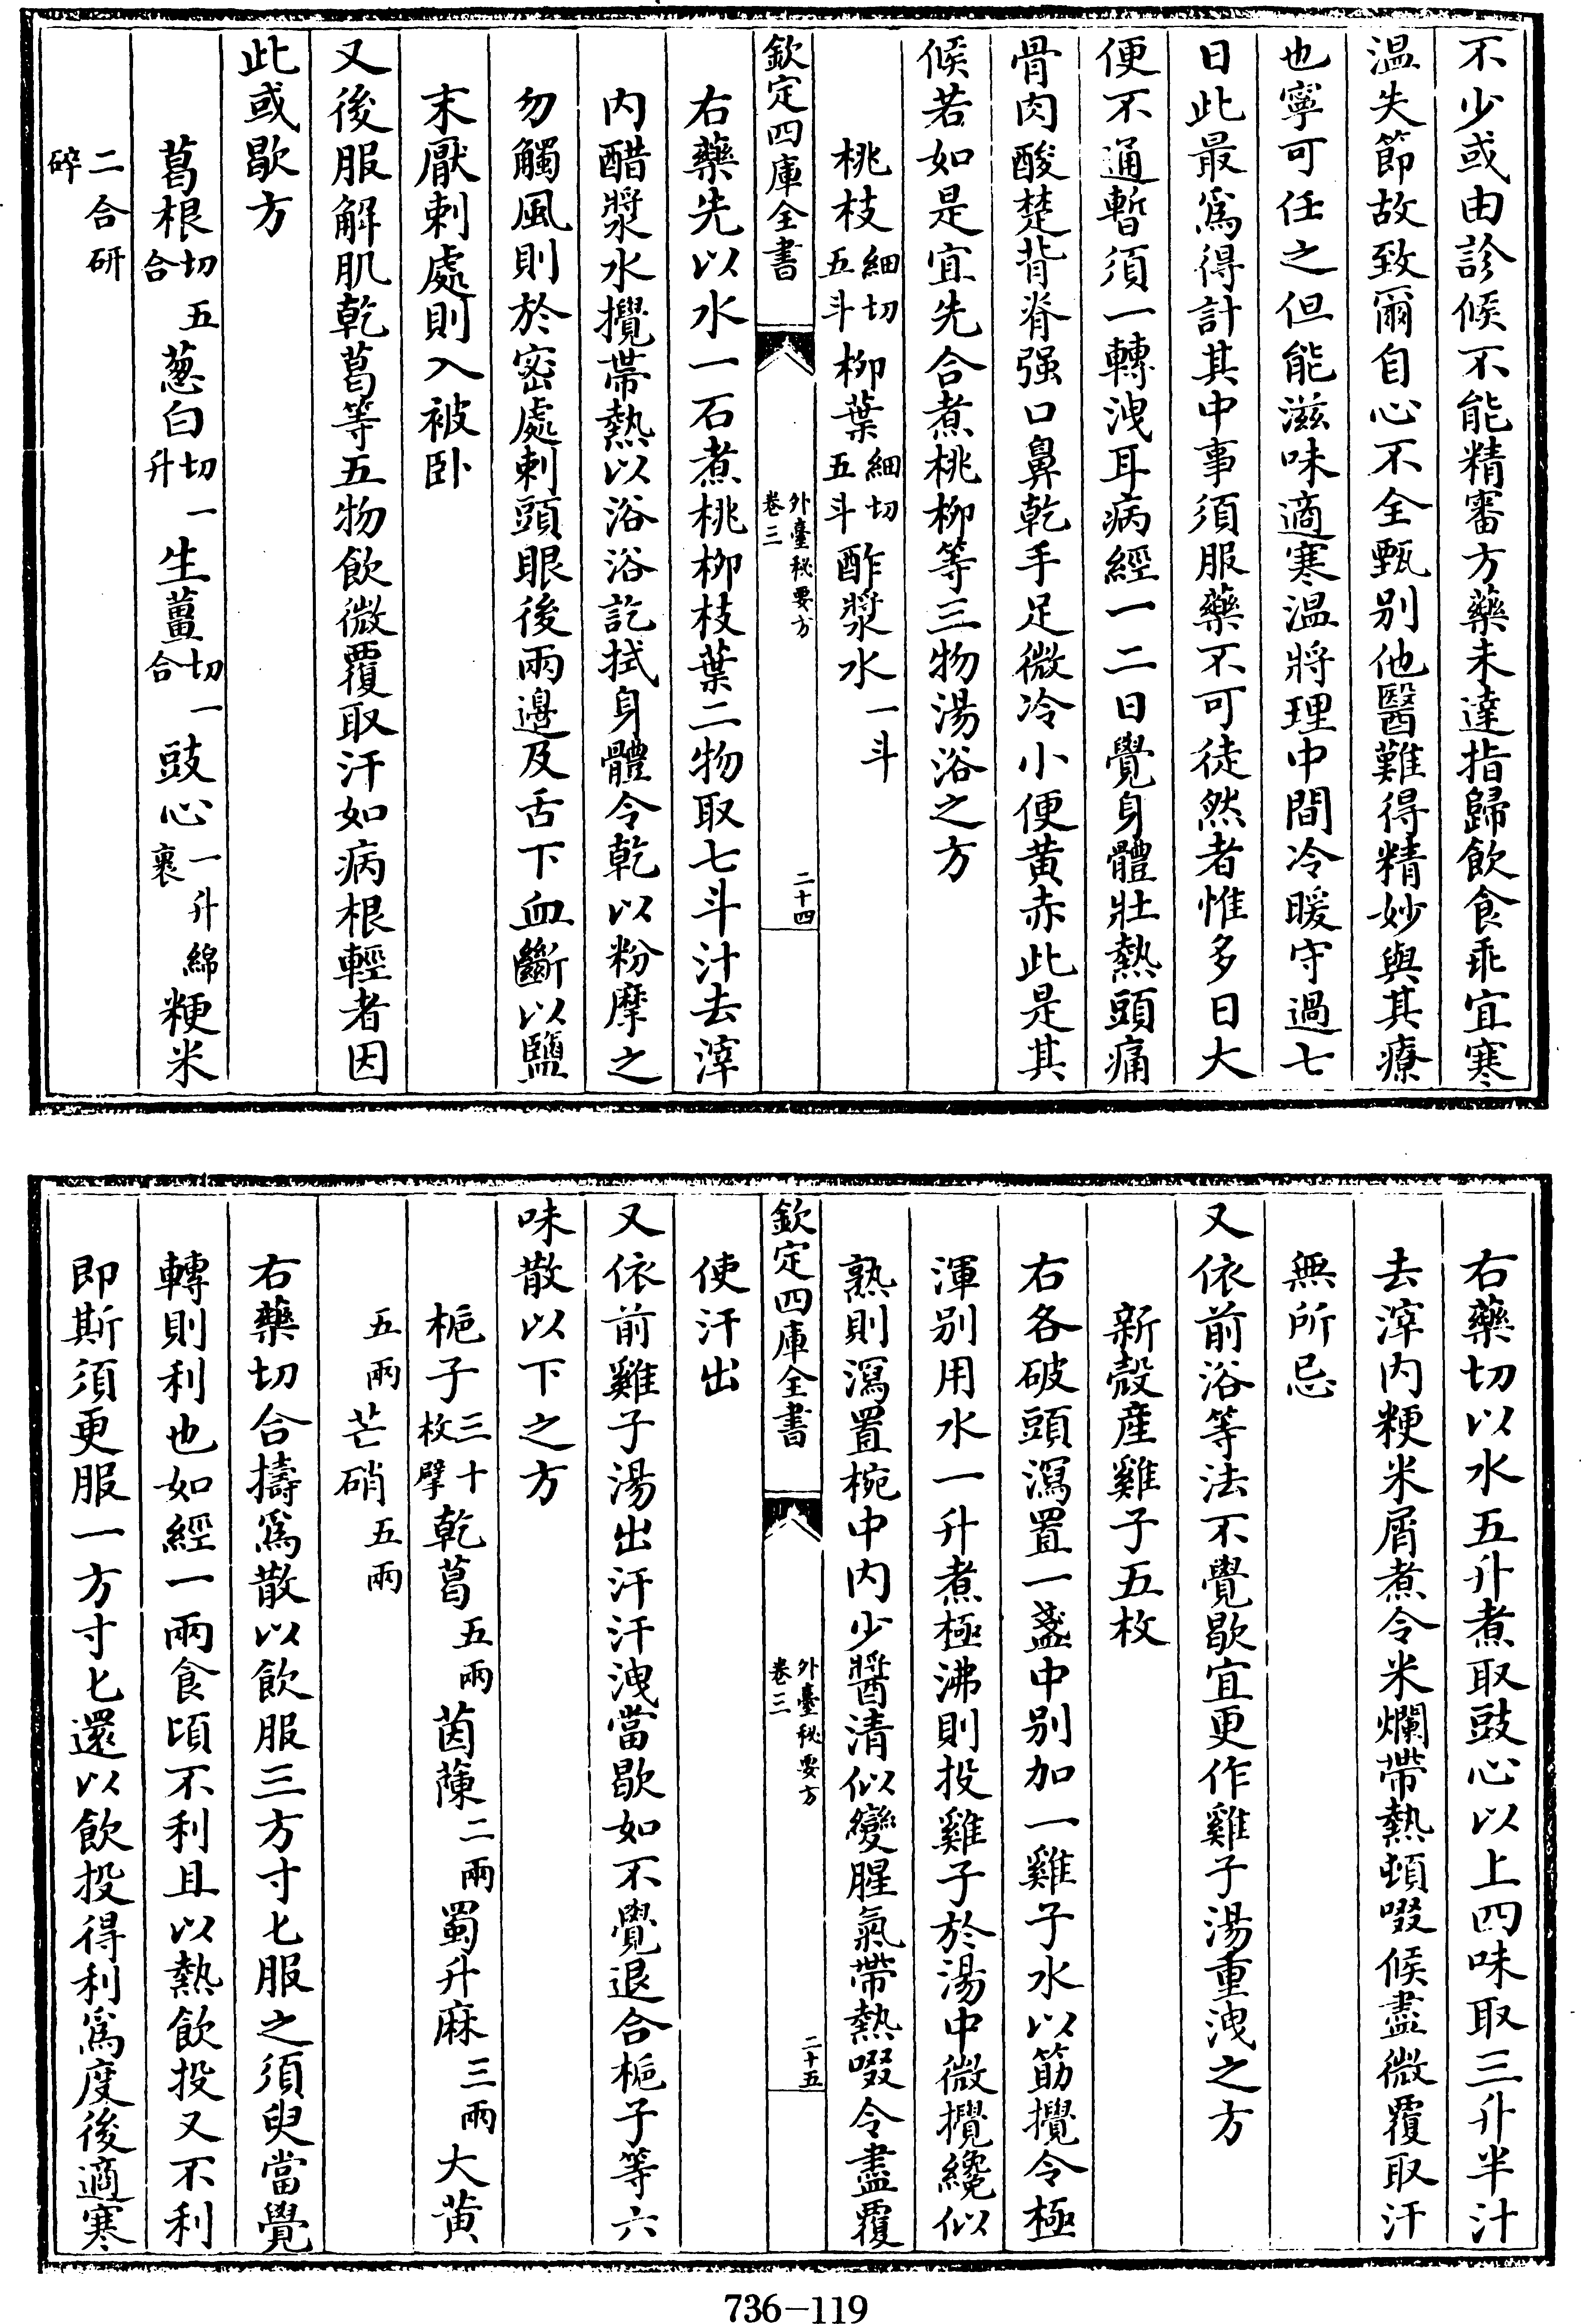 不少或由診候不能精審方藥未達指歸飲食乖宜寒
温失節故致爾自心不全甄别他醫難得精妙與其療
也寧可任之但能滋味適寒温將理中間冷暖守過七
日此最爲得計其中事須服藥不可徒然者惟多日大
便不通暫須一轉洩耳病經一二日覺身體壯熱頭痛
骨肉酸楚背脊强口鼻乾手足微冷小便黄赤此是其
候若如是宜先合煮桃柳等三物湯浴之方
桃枝細切五斗柳葉細切五斗酢漿水一斗
欽定四庫全書
外臺秘要方
卷三
二十四
右藥先以水一石煮桃柳枝葉二物取七斗汁去滓
内醋漿水攪帶熱以浴浴訖拭身體令乾以粉摩之
勿觸風則於密處刺頭眼後兩邉及舌下血斷以鹽
末厭刺處則入被卧
又後服解肌乾葛等五物飲微覆取汗如病根輕者因
此或歇方
葛根切五合葱白切一升生薑切一合豉心一升綿裹粳米
二合研碎
右藥切以水五升煮取豉心以上四味取三升半汁
去滓内粳米屑煮令米爛帶熱頓啜候盡微覆取汗
無所忌
又依前浴等法不覺歇宜更作雞子湯重洩之方
新殻産雞子五枚
右各破頭瀉置一盞中别加一雞子水以筯攪令極
渾别用水一升煮極沸則投雞子於湯中微攪纔似
熟則瀉置椀中内少醬清似變腥氣帶熱啜令盡覆
欽定四庫全書
外臺秘要方
卷三
二十五
使汗出
又依前雞子湯出汗汗洩當歇如不覺退合梔子等六
味散以下之方
梔子三十枚擘乾葛五兩茵蔯二兩蜀升麻三兩大黄
五兩芒硝五兩
右藥切合擣爲散以飲服三方寸匕服之須臾當覺
轉則利也如經一兩食頃不利且以熱飲投又不利
即斯須更服一方寸匕還以飲投得利爲度後適寒
736—119